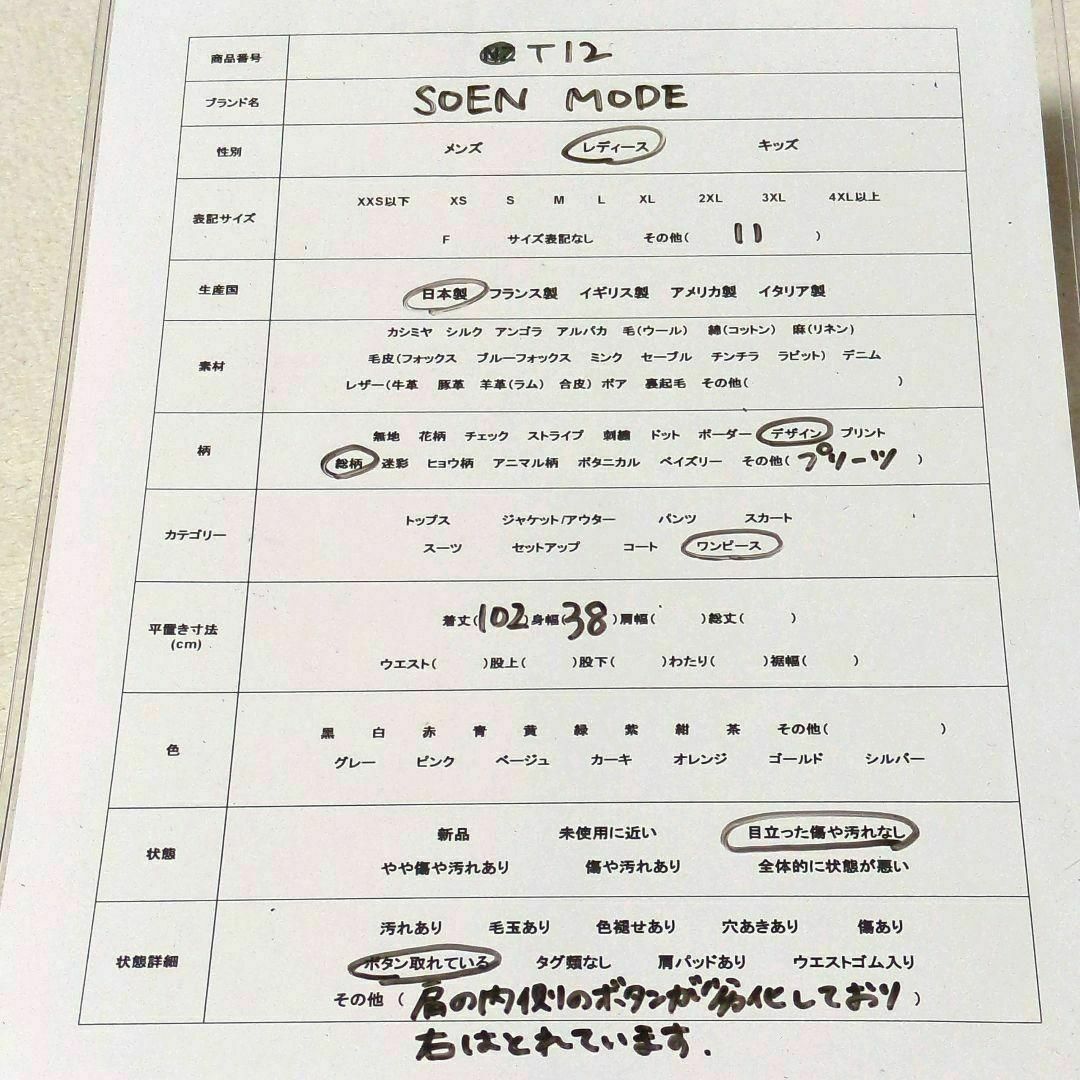 商品番号 T12
ブランド名 SOEN MODE
性別 メンズ レディース キッズ
XXS以下 XS S M L XL 2XL 3XL 4XL以上
表記サイズ
F サイズ表記なし その他( 11 )
生産国 日本製 フランス製 イギリス製 アメリカ製 イタリア製
カシミヤ シルク アンゴラ アルパカ 毛(ウール) 綿(コットン) 麻(リネン)
素材 毛皮(フォックス ブルーフォックス ミンク セーブル チンチラ ラビット) デニム
レザー(牛革 豚革 羊革(ラム) 合皮) ボア 裏起毛 その他( )
無地 花柄 チェック ストライプ 刺繍 ドット ボーダー デザイン プリント
柄
総柄 迷彩 ヒョウ柄 アニマル柄 ボタニカル ペイズリー その他( プリーツ )
トップス ジャケット/アウター パンツ スカート
カテゴリー
スーツ セットアップ コート ワンピース
着丈(102)身幅(38)肩幅( )総丈( )
平置き寸法
(cm)
ウエスト( )股上( )股下( )わたり( )裾幅( )
黒 白 赤 青 黄 緑 紫 紺 茶 その他( )
色
グレー ピンク ベージュ カーキ オレンジ ゴールド シルバー
新品 未使用に近い 目立った傷や汚れなし
状態
やや傷や汚れあり 傷や汚れあり 全体的に状態が悪い
汚れあり 毛玉あり 色褪せあり 穴あきあり 傷あり
状態詳細 ボタン取れている タグ類なし 肩パッドあり ウエストゴム入り
その他 ( 肩の内側のボタンが劣化しており )
右はとれています.